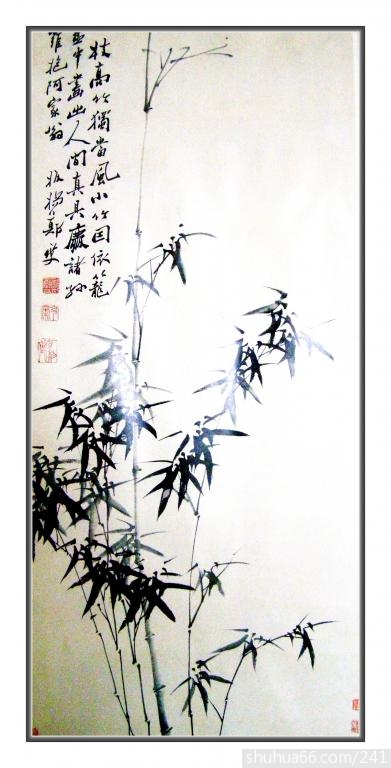 枝高竹獨當風小竹因依籠
蓋中畫出人間真具慶諸孫
羅抱阿家翁
板橋鄭燮
shuhua66.com/241